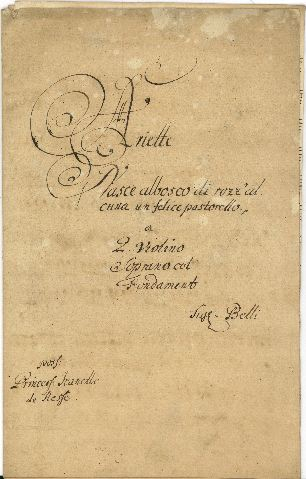 Ariette
Nasce al bosco de rozz' al
cuna un felice pastorello,
a
2. Violino
Soprano col
Fondament
Sigr. Belli
Princess
de Hesse